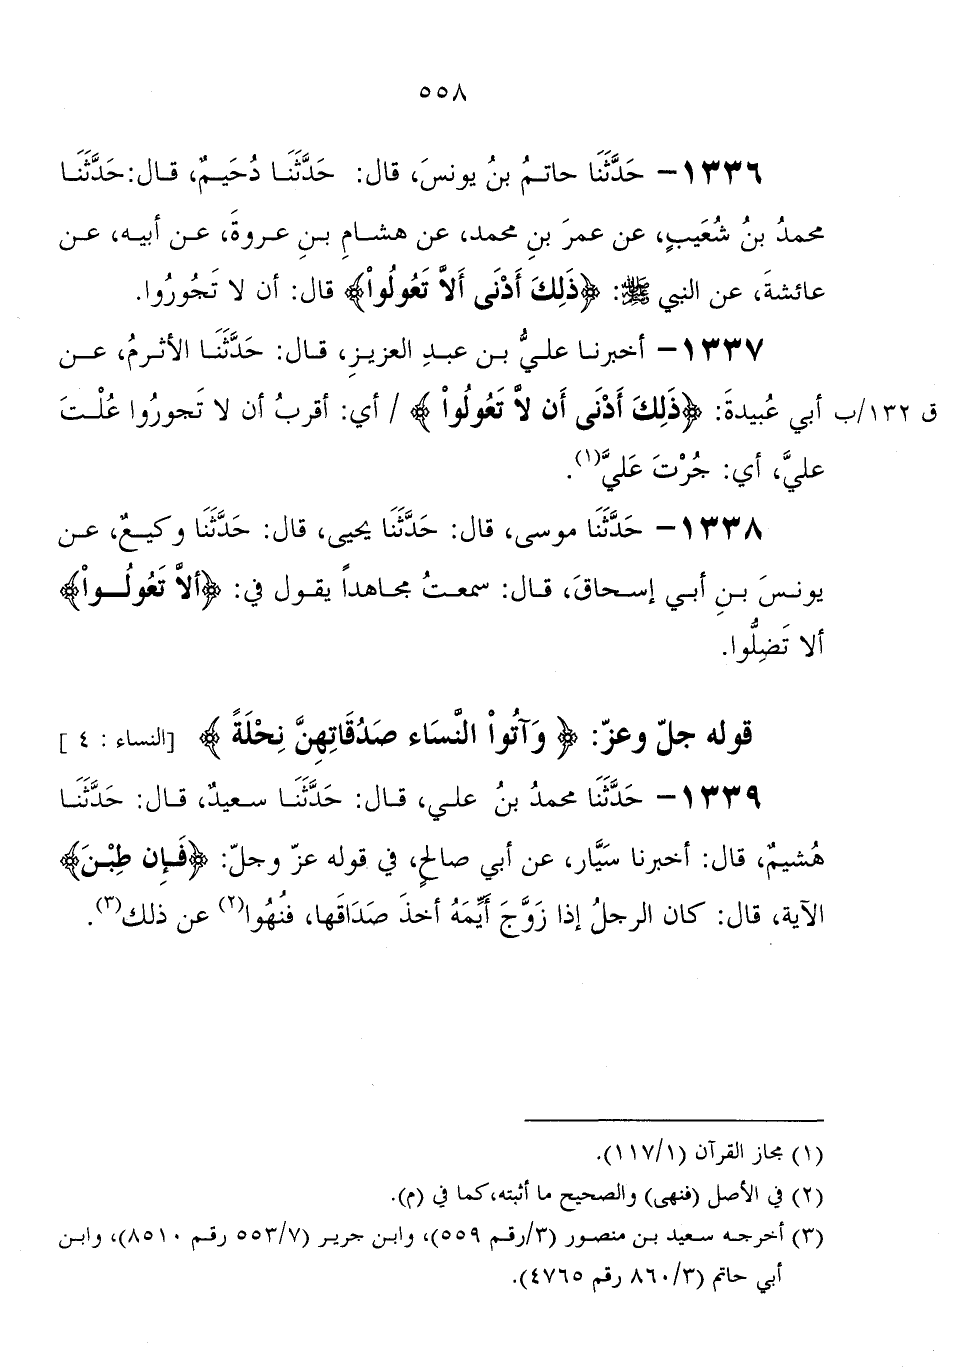 ٥٥٨
١٣٣٦- حَدَّثَنَا حاتـمُ بنُ يونسَ، قال: حَدَّثَنَـا دُحَيـمٌ، قـال:حَدَّثَنَـا
محمدُ بنُ شُعَيبٍ، عن عمرَ بنِ محمد، عن هشـامِ بـنِ عـروةَ، عـن أبيـه، عـن
عائشةَ، عن النبي ﷺ: ﴿ذَلِكَ أَدْنَى أَلاَّ تَعُولُواْ﴾ قال: أن لا تَجُورُوا.
١٣٣٧- أخبرنـا علـيُّ بـن عبـدِ العزيـزِ، قـال: حَدَّثَنَـا الأثـرمُ، عـن
ق ١٣٢/ب أبي عُبيدةَ: ﴿ذَلِكَ أَدْنَى أَن لاَّ تَعُولُواْ ﴾ / أي: أقربُ أن لا تَجورُوا عُلْـتَ
عليَّ، أي: جُرْتَ عَليَّ(١).
١٣٣٨- حَدَّثَنَا موسى، قال: حَدَّثَنَا يحيى، قال: حَدَّثَنَا وكيـعٌ، عـن
يونـسَ بـنِ أبـي إسـحاقَ، قـال: سمعـتُ مجـاهداً يقـول في: ﴿ألاَّ تَعُولُـــواْ﴾
ألا تَضِلُّوا.
قوله جلّ وعزّ: ﴿ وَآتُواْ النَّسَاء صَدُقَاتِهِنَّ نِحْلَةً ﴾ [النساء : ٤ ]
١٣٣٩- حَدَّثَنَا محمدُ بنُ علـي، قـال: حَدَّثَنَـا سـعيدٌ، قـال: حَدَّثَنَـا
هُشيمٌ، قال: أخبرنا سَيَّار، عن أبي صالحٍ، في قوله عزّ وجلّ: ﴿فَـإِن طِبْـنَ﴾
الآية، قال: كان الرجلُ إذا زَوَّجَ أَيِّمَهُ أخذَ صَدَاقَها، فنُهُوا(٢) عن ذلك(٣).
(١) مجاز القرآن (١١٧/١).
(٢) في الأصل (فنهى) والصحيح ما أثبته،كما في (م).
(٣) أخرجـه سـعيد بـن منصـور (٣/رقـم ٥٥٩)، وابـن جريـر (٥٥٣/٧ رقـم ٨٥١٠)، وابـن
أبي حاتم (٨٦٠/٣ رقم ٤٧٦٥).